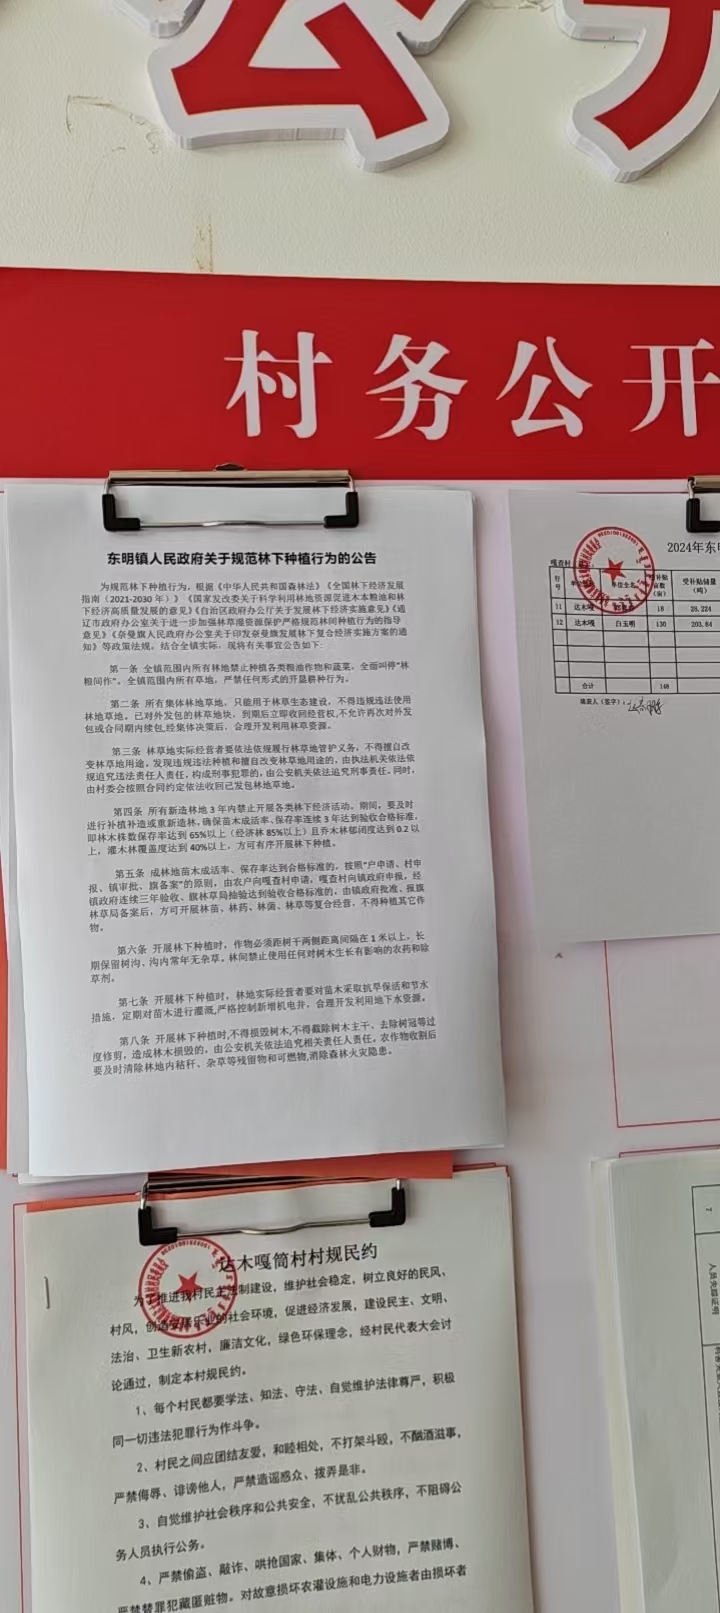 公开
村务公开
东明镇人民政府关于规范林下种植行为的公告
为规范林下种植行为，根据《中华人民共和国森林法》《全国林下经济发展
指南（2021-2030 年）》《国家发改委关于科学利用林地资源促进木本粮油和林
下经济高质量发展的意见》《自治区政府办公厅关于发展林下经济实施意见》《通
辽市政府办公室关于进一步加强林草湿资源保护严格规范林间种植行为的指导
意见》《奈曼旗人民政府办公室关于印发奈曼旗发展林下复合经济实施方案的通
知》等政策法规。结合全镇实际，现将有关事宜公告如下：
第一条 全镇范围内所有林地禁止种植各类粮油作物和蔬菜，全面叫停“林
粮间作”。全镇范围内所有草地，严禁任何形式的开垦耕种行为。
第二条 所有集体林地草地，只能用于林草生态建设，不得违规违法使用
林地草地。已对外发包的林草地块，到期后立即收回经营权，不允许再次对外发
包或合同期内续包，经集体决策后，合理开发利用林草资源。
第三条 林草地实际经营者要依法依规履行林草地管护义务，不得擅自改
变林草地用途，发现违规违法种植和擅自改变林草地用途的，由执法机关依法依
规追究违法责任人责任，构成刑事犯罪的，由公安机关依法追究刑事责任。同时，
由村委会按照合同约定依法收回已发包林地草地。
第四条 所有新造林地 3 年内禁止开展各类林下经济活动。期间，要及时
进行补植补造或重新造林，确保苗木成活率、保存率连续 3 年达到验收合格标准，
即林木株数保存率达到 65%以上（经济林 85%以上）且乔木林郁闭度达到 0.2 以
上，灌木林覆盖度达到 40%以上，方可有序开展林下种植。
第五条 成林地苗木成活率、保存率达到合格标准的，按照“户申请、村申
报、镇审批、旗备案”的原则，由农户向嘎查村申请，嘎查村向镇政府申报，经
镇政府连续三年验收、旗林草局抽验达到验收合格标准的，由镇政府批准、报旗
林草局备案后，方可开展林苗、林药、林菌、林草等复合经营，不得种植其它作
物。
第六条 开展林下种植时，作物必须距树干两侧距离间隔在 1 米以上，长
期保留树沟、沟内常年无杂草。林间禁止使用任何对树木生长有影响的农药和除
草剂。
第七条 开展林下种植时，林地实际经营者要对苗木采取抗旱保活和节水
措施，定期对苗木进行灌溉，严格控制新增机电井，合理开发利用地下水资源。
第八条 开展林下种植时，不得损毁树木，不得截除树木主干、去除树冠等过
度修剪，造成林木损毁的，由公安机关依法追究相关责任人责任。农作物收割后
要及时清除林地内秸秆、杂草等残留物和可燃物，消除森林火灾隐患。
2024年东明
嘎查村
行号 单位全名 补贴亩数（亩） 受补贴储量（吨）
11 达木嘎 18 28.224
12 达木嘎 白玉明 130 203.84
合计 148
填表人（签字）：
达木嘎筒村村规民约
为了推进我村民主法制建设，维护社会稳定，树立良好的民风、
村风，创造安居乐业的社会环境，促进经济发展，建设民主、文明、
法治、卫生新农村，廉洁文化，绿色环保理念，经村民代表大会讨
论通过，制定本村规民约。
1、每个村民都要学法、知法、守法、自觉维护法律尊严，积极
同一切违法犯罪行为作斗争。
2、村民之间应团结友爱，和睦相处，不打架斗殴，不酗酒滋事，
严禁侮辱、诽谤他人，严禁造谣惑众、拨弄是非。
3、自觉维护社会秩序和公共安全，不扰乱公共秩序，不阻碍公
务人员执行公务。
4、严禁偷盗、敲诈、哄抢国家、集体、个人财物，严禁赌博、
严禁替罪犯藏匿赃物。对故意损坏农灌设施和电力设施者由损坏者
7
人员失踪证明